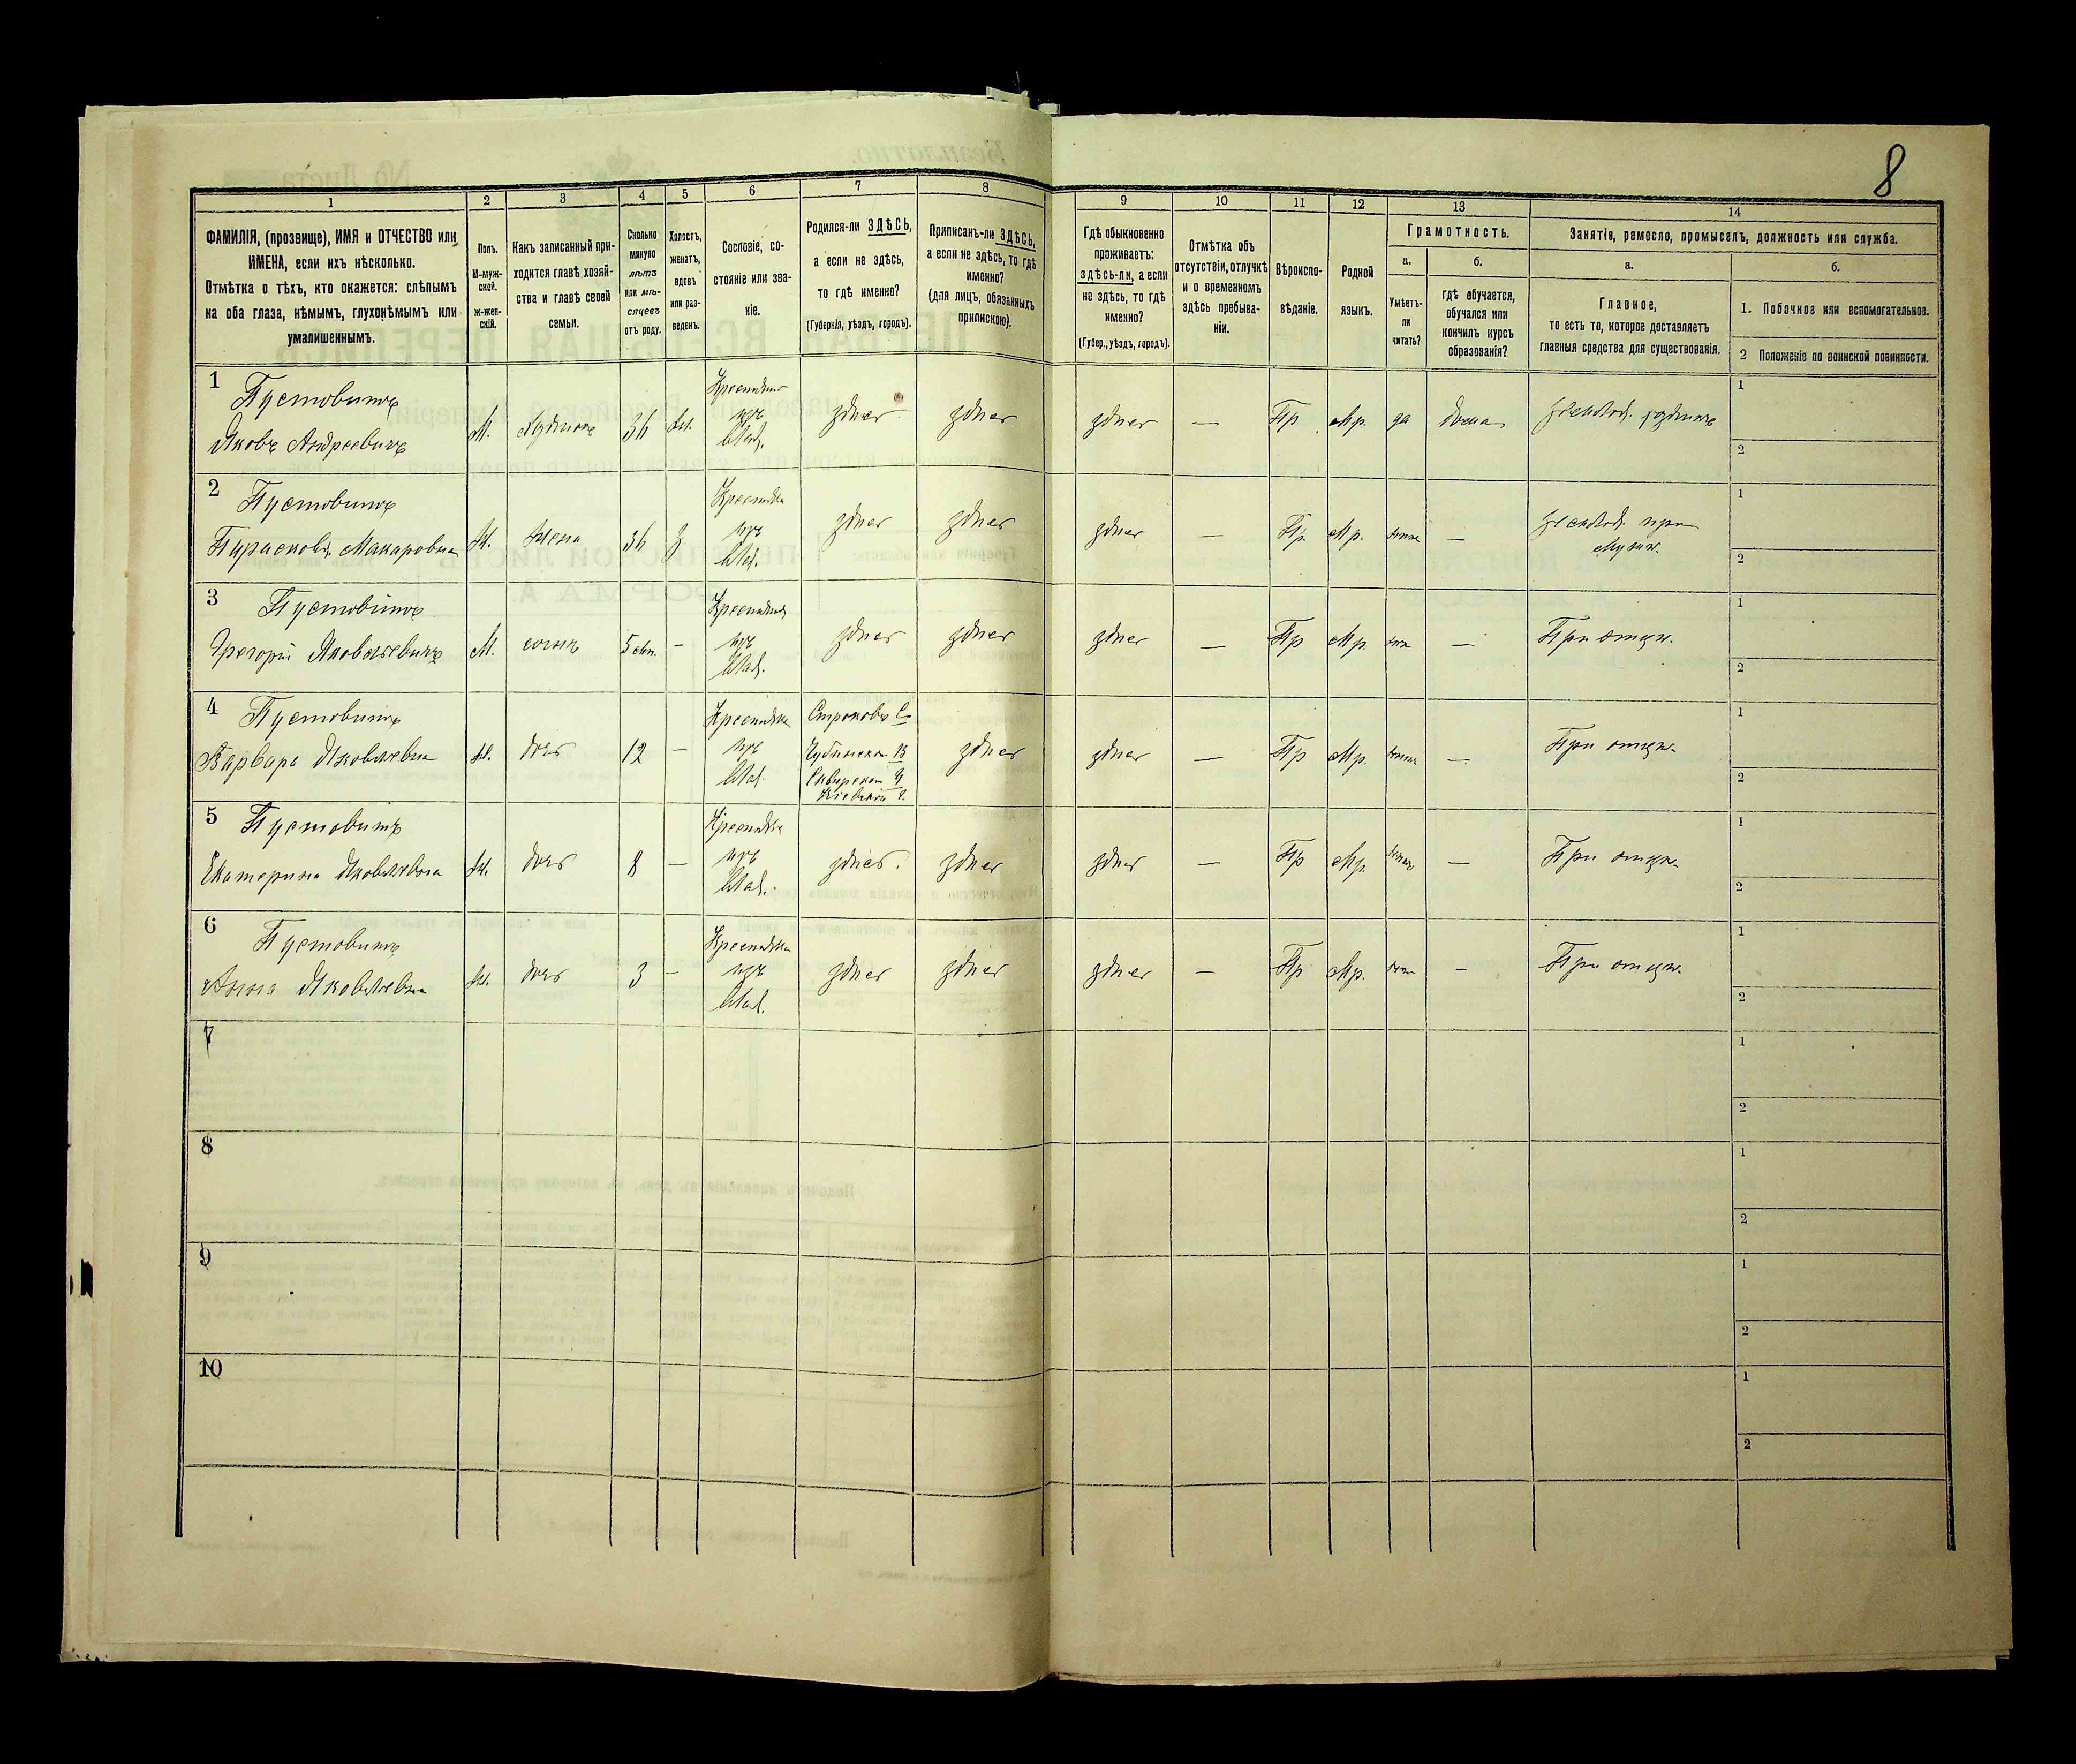 8
1
2
3
4
5
6
7
8
9
10
11
12
13
14
ФАМИЛІЯ, (прозвище), ИМЯ и ОТЧЕСТВО или
ИМЕНА, если ихъ нѣсколько.
Отмѣтка о тѣхъ, кто окажется: слѣпымъ
на оба глаза, нѣмымъ, глухонѣмымъ или
умалишеннымъ.
Полъ.
М-муж-
ской.
Ж-жен-
скій.
Какъ записанный при-
ходится главѣ хозяй-
ства и главѣ своей
семьи.
Сколько
минуло
лѣтъ
или мѣ-
сяцевъ
отъ роду.
Холостъ,
женатъ,
вдовъ
или раз-
веденъ.
Сословіе, со-
стояніе или зва-
ніе.
Родился-ли ЗДѢСЬ,
а если не здѣсь,
то гдѣ именно?
(Губернія, уѣздъ, городъ).
Приписанъ-ли ЗДѢСЬ,
а если не здѣсь, то гдѣ
именно?
(для лицъ, обязанныхъ
припискою).
Гдѣ обыкновенно
проживаетъ:
здѣсь-ли, а если
не здѣсь, то гдѣ
именно?
(Губер., уѣздъ, городъ).
Отмѣтка объ
отсутствіи, отлучкѣ
и о временномъ
здѣсь пребыва-
ніи.
Вѣроиспо-
вѣданіе.
Родной
языкъ.
Грамотность.
а.
Умѣетъ-
ли
читать?
б.
гдѣ обучается,
обучался или
кончилъ курсъ
образованія?
Занятія, ремесло, промыселъ, должность или служба.
а.
Главное,
то есть то, которое доставляетъ
главныя средства для существованія.
б.
1. Побочное или вспомогательное.
2 Положеніе по воинской повинности.
1
Пустовитъ
Яковъ Андреевичъ
М.
36
Крестьянинъ
изъ
Влад.
здѣсь
здѣсь
здѣсь
—
Пр
Мр.
да
дома
1
2
2
Пустовитъ
Макаровна
Ж.
жена
36
З
Крестьянка
изъ
Влад.
здѣсь
здѣсь
здѣсь
—
Пр.
Мр.
—
при
мужѣ.
1
2
3
Пустовитъ
Григорій Яковлевичъ
М.
сынъ
5
—
изъ
Влад.
здѣсь
здѣсь
здѣсь
—
Пр
Мр.
—
При отцѣ.
1
2
4
Пустовитъ
Варвара Яковлевна
Ж.
дочь
12
—
Крестьянка
изъ
Влад.
Кіевской г.
здѣсь
здѣсь
—
Пр
Мр.
—
При отцѣ.
1
2
5
Пустовитъ
Екатерина Яковлевна
Ж.
дочь
8
—
Крестьянка
изъ
Влад.
здѣсь.
здѣсь
здѣсь
—
Пр
Мр.
—
При отцѣ.
1
2
6
Пустовитъ
Анна Яковлевна
Ж.
дочь
3
—
Крестьянка
изъ
Влад.
здѣсь
здѣсь
здѣсь
—
Пр
Мр.
—
При отцѣ.
1
2
7
1
2
8
1
2
9
1
2
10
1
2